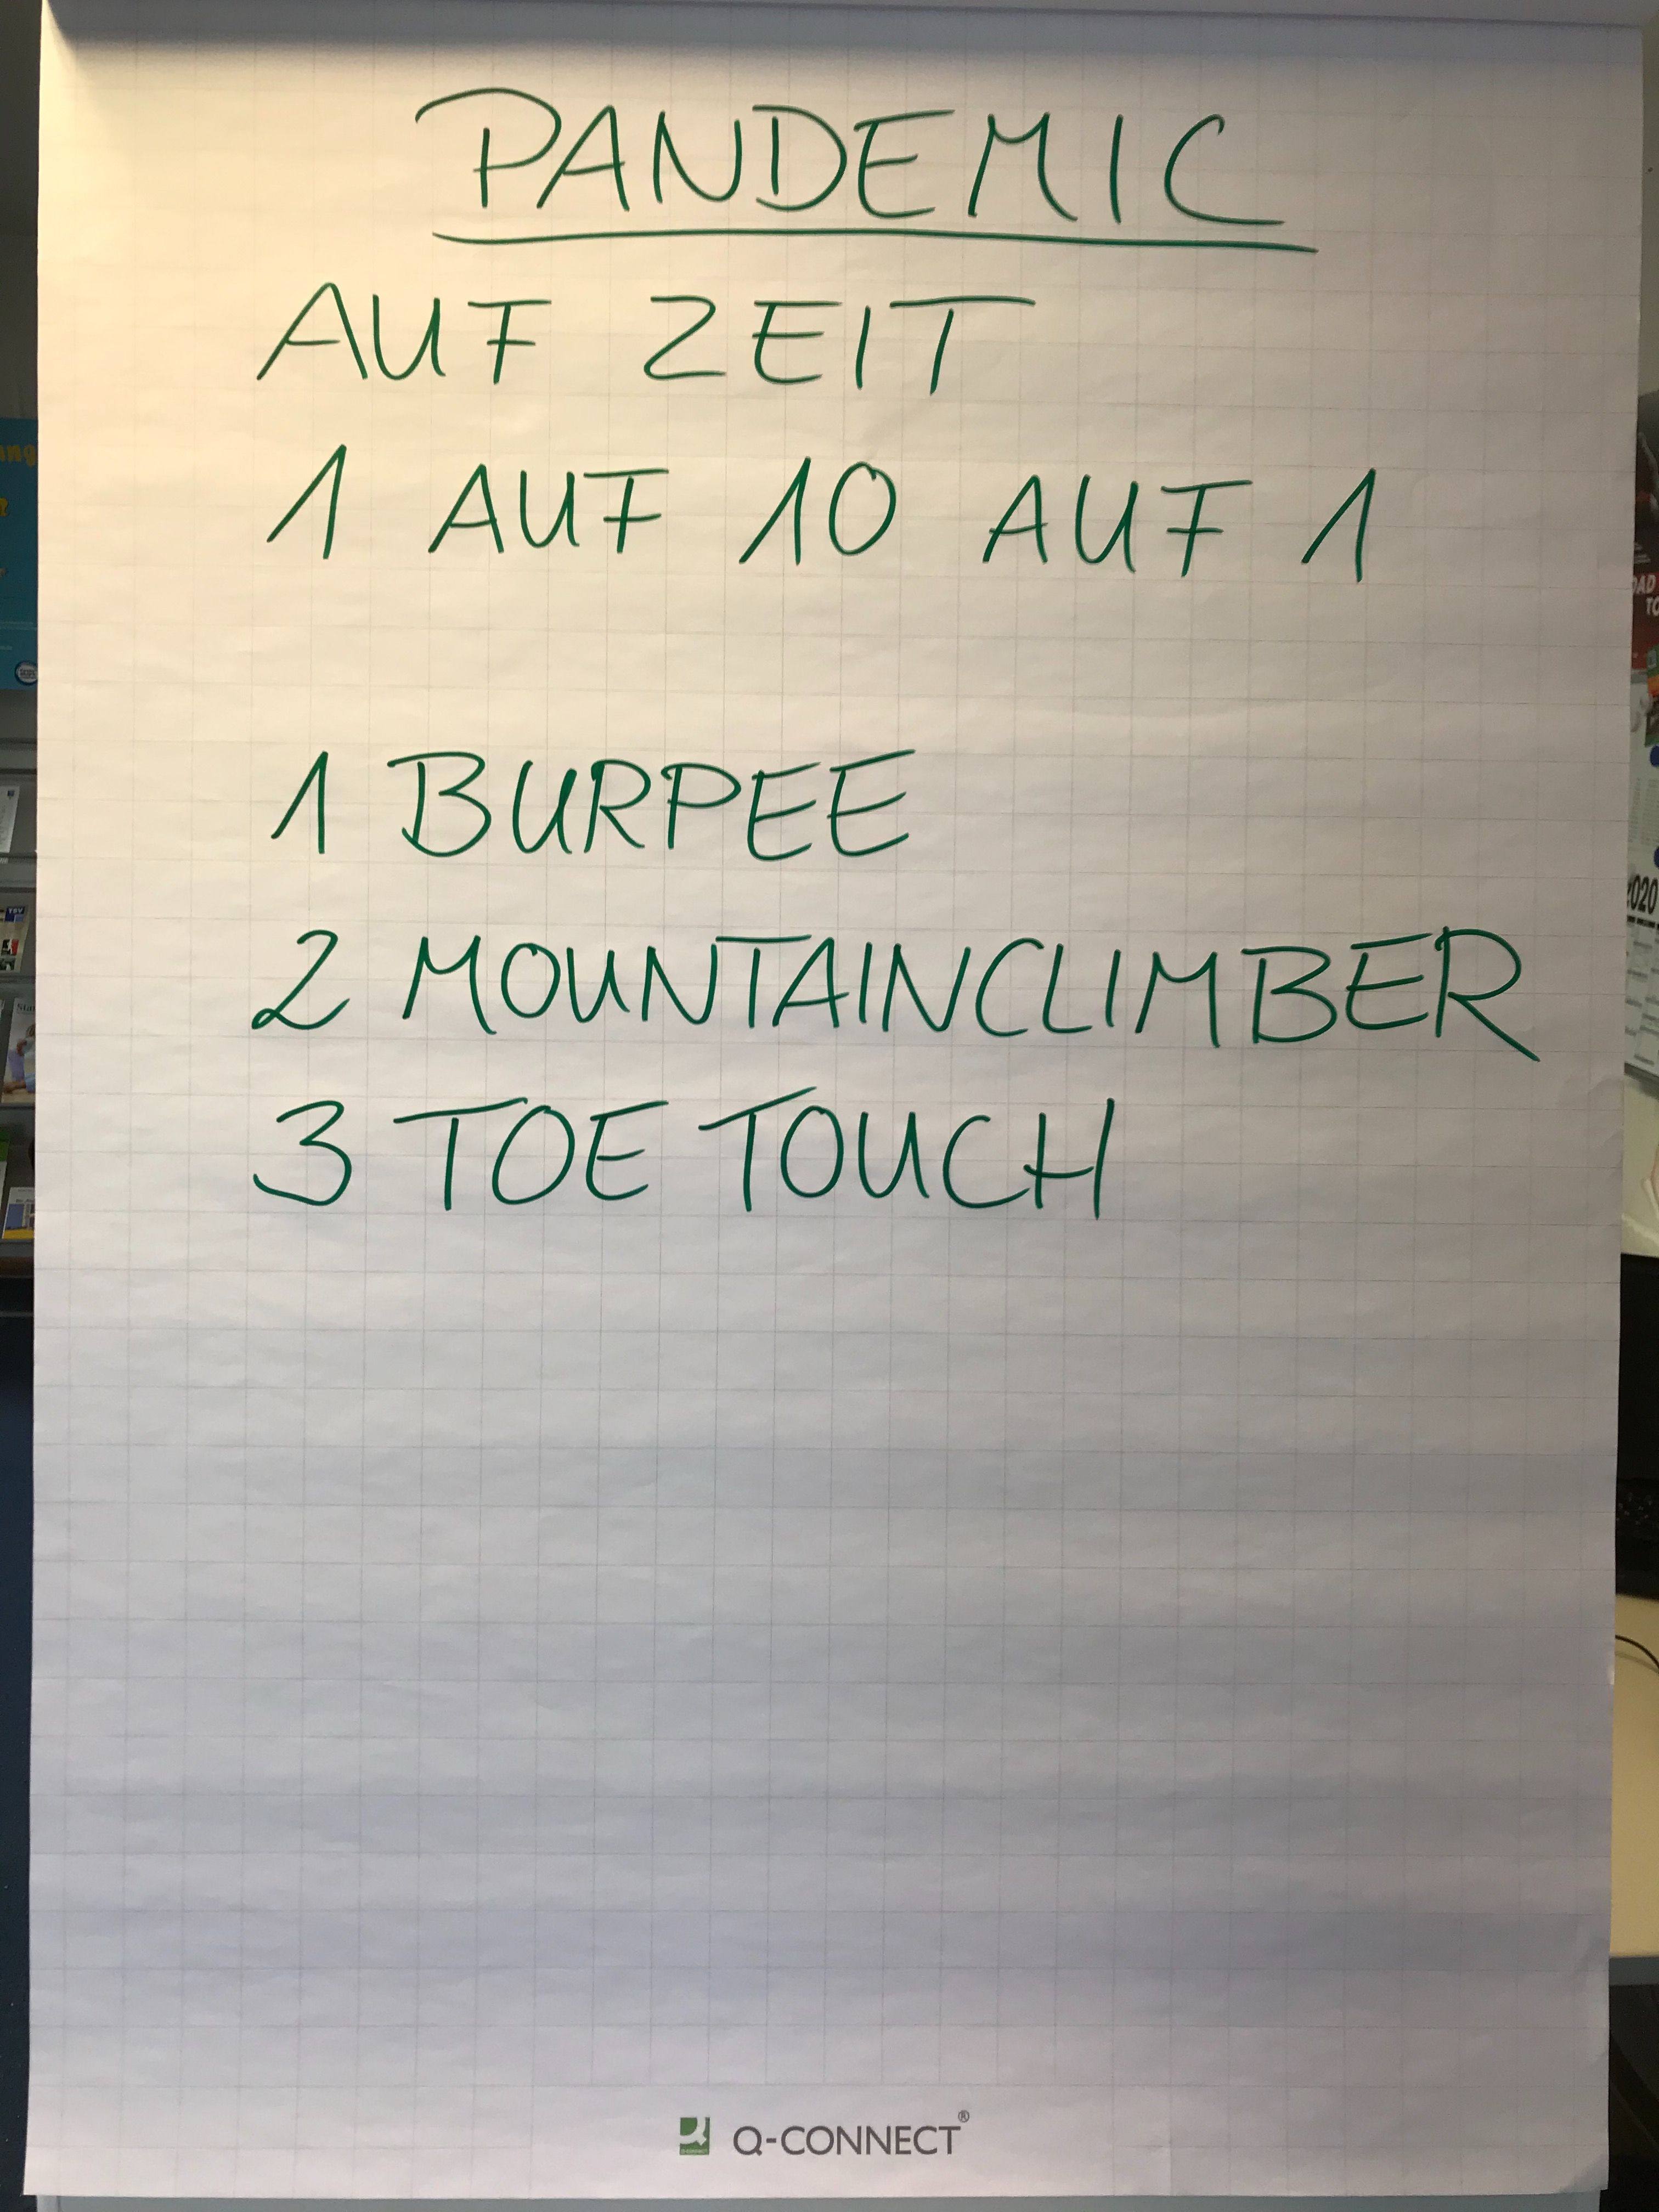 PANDEMIC
AUF ZEIT
1 AUF 10 AUF 1
1 BURPEE
2 MOUNTAINCLIMBER
3 TOE TOUCH
Q-CONNECT®
2020